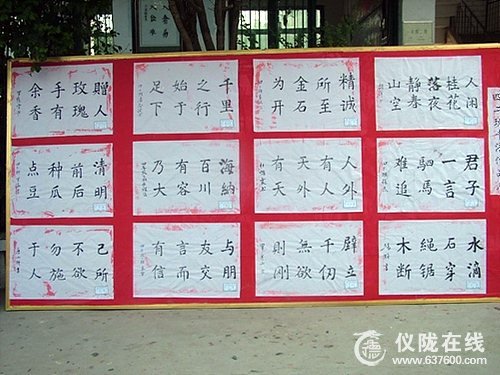 人闲
桂花
落夜
静春
山空
精诚
所至
金石
为开
千里
之行
始于
足下
贈人
玫瑰
手有
余香
君子
一言
駟馬
难追
人外
有人
天外
有天
海納
百川
有容
乃大
清明
前后
种瓜
点豆
水滴
石穿
绳锯
木断
壁立
千仞
無欲
則刚
与朋
友交
言而
有信
己所
不欲
勿施
于人
仪陇在线
www.637600.com